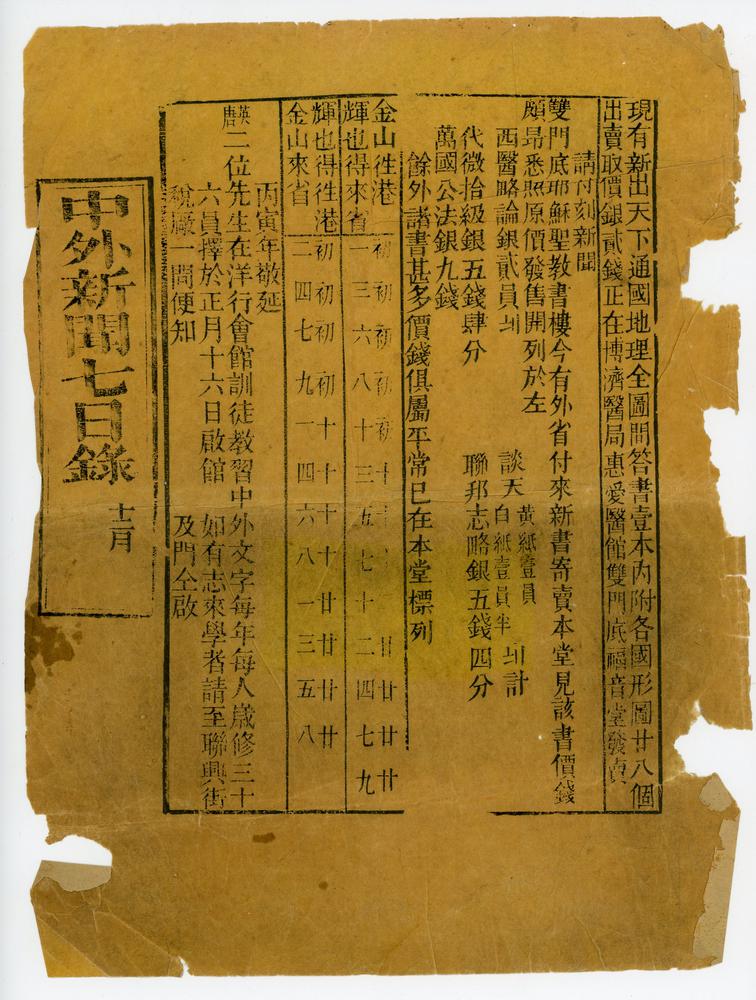 現有新出天下通國地理全圖問答書壹本內附各國形圖廿八個
出賣取價銀貳錢正在博濟醫局惠愛醫館雙門底福音堂發賣
請付刻新聞
雙門底耶穌聖教書樓今有外省付來新書寄賣本堂見該書價錢
頗昻悉照原價發售開列於左
西醫略論銀貳員 談天 黃紙壹員 白紙壹員半 計
代微拾級銀五錢肆分 聯邦志略銀五錢四分
萬國公法銀九錢
餘外諸書甚多價錢俱屬平常已在本堂標列
金山徃港
輝也得來省
初三 初六 初八 初十 十三 十五 十七 十 廿二 廿四 廿七 廿九
輝也得徃港
金山來省
初二 初四 初七 初九 十一 十四 十六 十八 廿一 廿三 廿五 廿八
丙寅年敬延
英唐二位先生在洋行會館訓徒教習中外文字每年每人歲修三十
六員擇於正月十六日啟館 如有志來學者請至聯興街
稅廠一問便知 及門仝啟
中外新聞七日錄
十二月